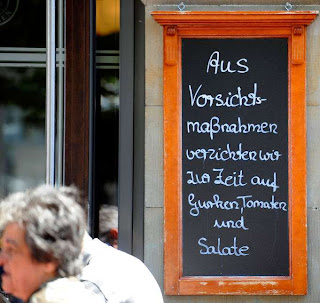 Aus
Vorsichts-
maßnahmen
verzichten wir
zur Zeit auf
Gurken, Tomaten
und
Salate